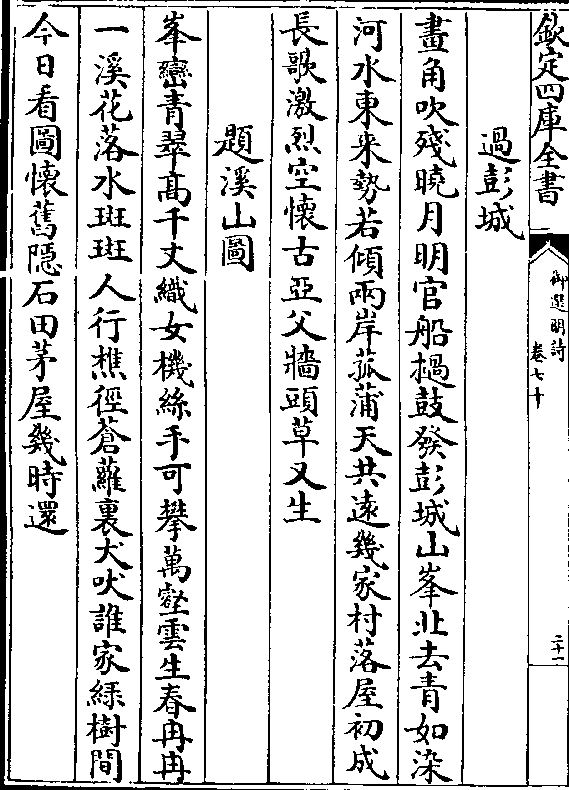 欽定四庫全書
御選明詩
卷七十
二十一
過彭城
畫角吹殘曉月明官船撾鼓發彭城山峯北去青如染
河水東來勢若傾兩岸菰蒲天共遠幾家村落屋初成
長歌激烈空懷古亞父牆頭草又生
題溪山圖
峯巒青翠髙千丈織女機絲手可攀萬壑雲生春冉冉
一溪花落水斑斑人行樵徑蒼蘿裏犬吠誰家緑樹間
今日看圖懷舊隱石田茅屋幾時還